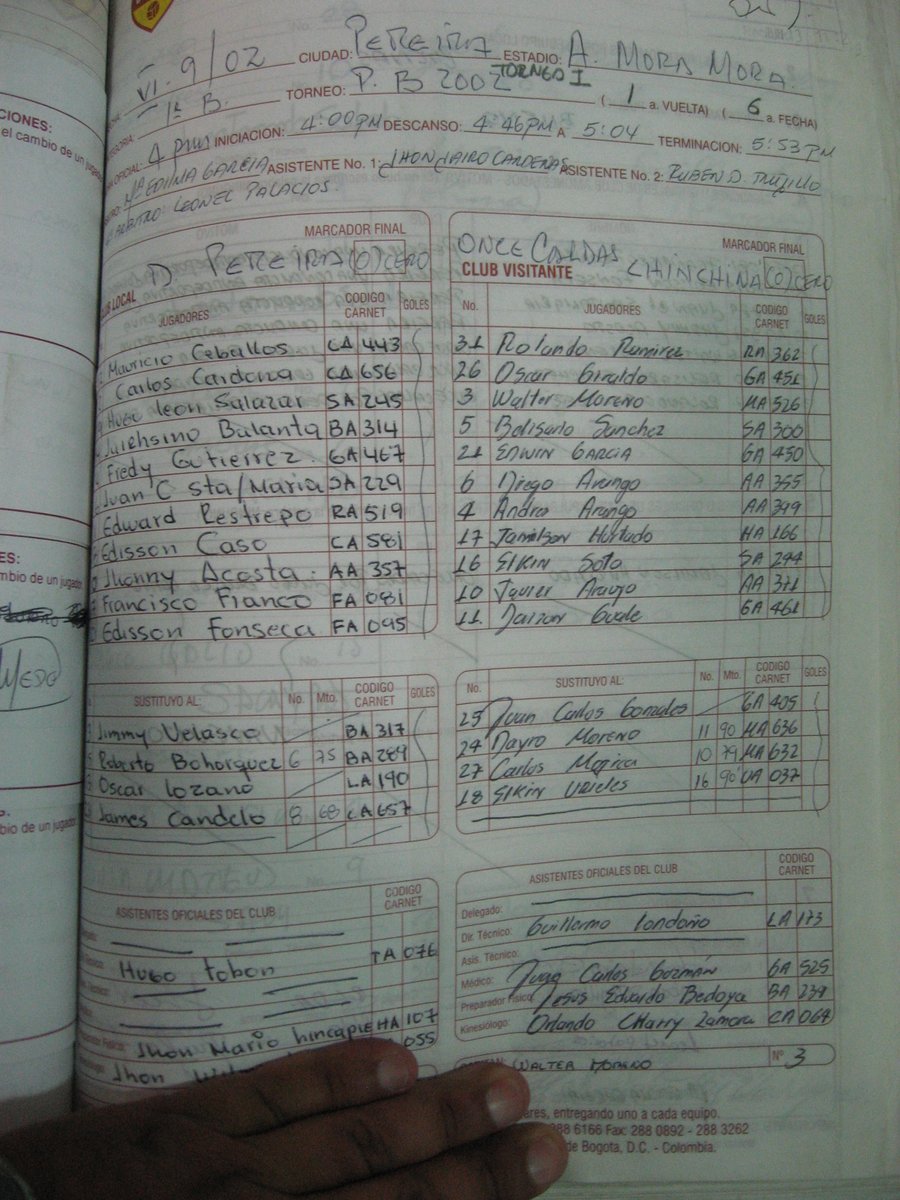 VI. 9/02 CIUDAD: PEREIRA ESTADIO: A. MORA MORA
1ª B. TORNEO: P. B 2002 TORNEO I ( 1 a. VUELTA) ( 6 a. FECHA)
4 pm INICIACION: 4:00PM DESCANSO: 4:46PM A 5:04 TERMINACION: 5:53 PM
Mª EDILMA GARCIA ASISTENTE No. 1: JHON JAIRO CARDENAS ASISTENTE No. 2: RUBEN D. TRUJILLO
LEONEL PALACIOS
MARCADOR FINAL
D PEREIRA (0) CERO
LOCAL
JUGADORES CODIGO CARNET GOLES
Mauricio Ceballos CA 443
Carlos Cardona CA 656
Hugo leon Salazar SA 245
Balanta BA 314
Fredy Gutierrez GA 467
Juan C sta/Maria SA 229
Edward Restrepo RA 519
Edisson Caso CA 581
Jhonny Acosta AA 357
Francisco Franco FA 081
Edisson Fonseca FA 095
SUSTITUYO AL: No. Mto. CODIGO CARNET GOLES
Jimmy Velasco BA 317
Roberto Bohorquez 6 75 BA 289
Oscar Lozano LA 190
James Candelo 8 68 CA 657
ASISTENTES OFICIALES DEL CLUB CODIGO CARNET
Hugo Tobon TA 076
Jhon Mario hincapie HA 107
Jhon 055
MARCADOR FINAL
ONCE CALDAS CHINCHINA (0) CERO
CLUB VISITANTE
No. JUGADORES CODIGO CARNET GOLES
31 Rolando Ramirez RA 362
26 Oscar Giraldo GA 451
3 Walter Moreno MA 526
5 Belisario Sanchez SA 300
21 EDWIN GARCIA GA 450
6 Diego Arango AA 355
4 Andres Arango AA 399
17 Jamilson Hurtado HA 166
16 Elkin Soto SA 294
10 Javier Araujo AA 371
11. GA 461
No. SUSTITUYO AL: No. Mto. CODIGO CARNET GOLES
25 Juan Carlos Gonzales GA 405
24 Dayro Moreno 11 90 MA 636
27 Carlos Mojica 10 79 MA 632
18 Elkin Urieles 16 90' UA 037
ASISTENTES OFICIALES DEL CLUB CODIGO CARNET
Delegado:
Dir. Técnico: Guillermo Londoño LA 173
Asis. Técnico:
Médico: Juan Carlos Guzmán GA 525
Preparador Físico: Jesus Eduardo Bedoya BA 239
Kinesiólogo: Orlando Charry Zamora CA 064
WALTER MORENO Nº 3
entregando uno a cada equipo.
288 6166 Fax: 288 0892 - 288 3262
de Bogota, D.C. - Colombia.
CIONES:
el cambio de un
ES:
mbio de un jugador
bio de un jugador